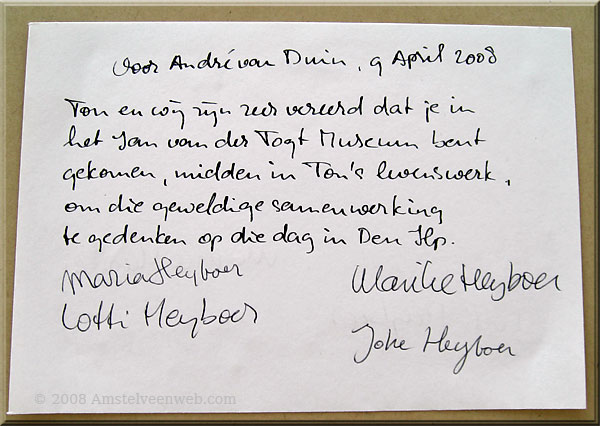 Voor André van Duin, 9 April 2008
Ton en wij zijn zeer vereerd dat je in
het Jan van der Togt Museum bent
gekomen, midden in Ton's levenswerk,
om die geweldige samenwerking
te gedenken op die dag in Den Ilp.
Maria Heyboer
Marike Heyboer
Lotti Heyboer
Joke Heyboer
© 2008 Amstelveenweb.com